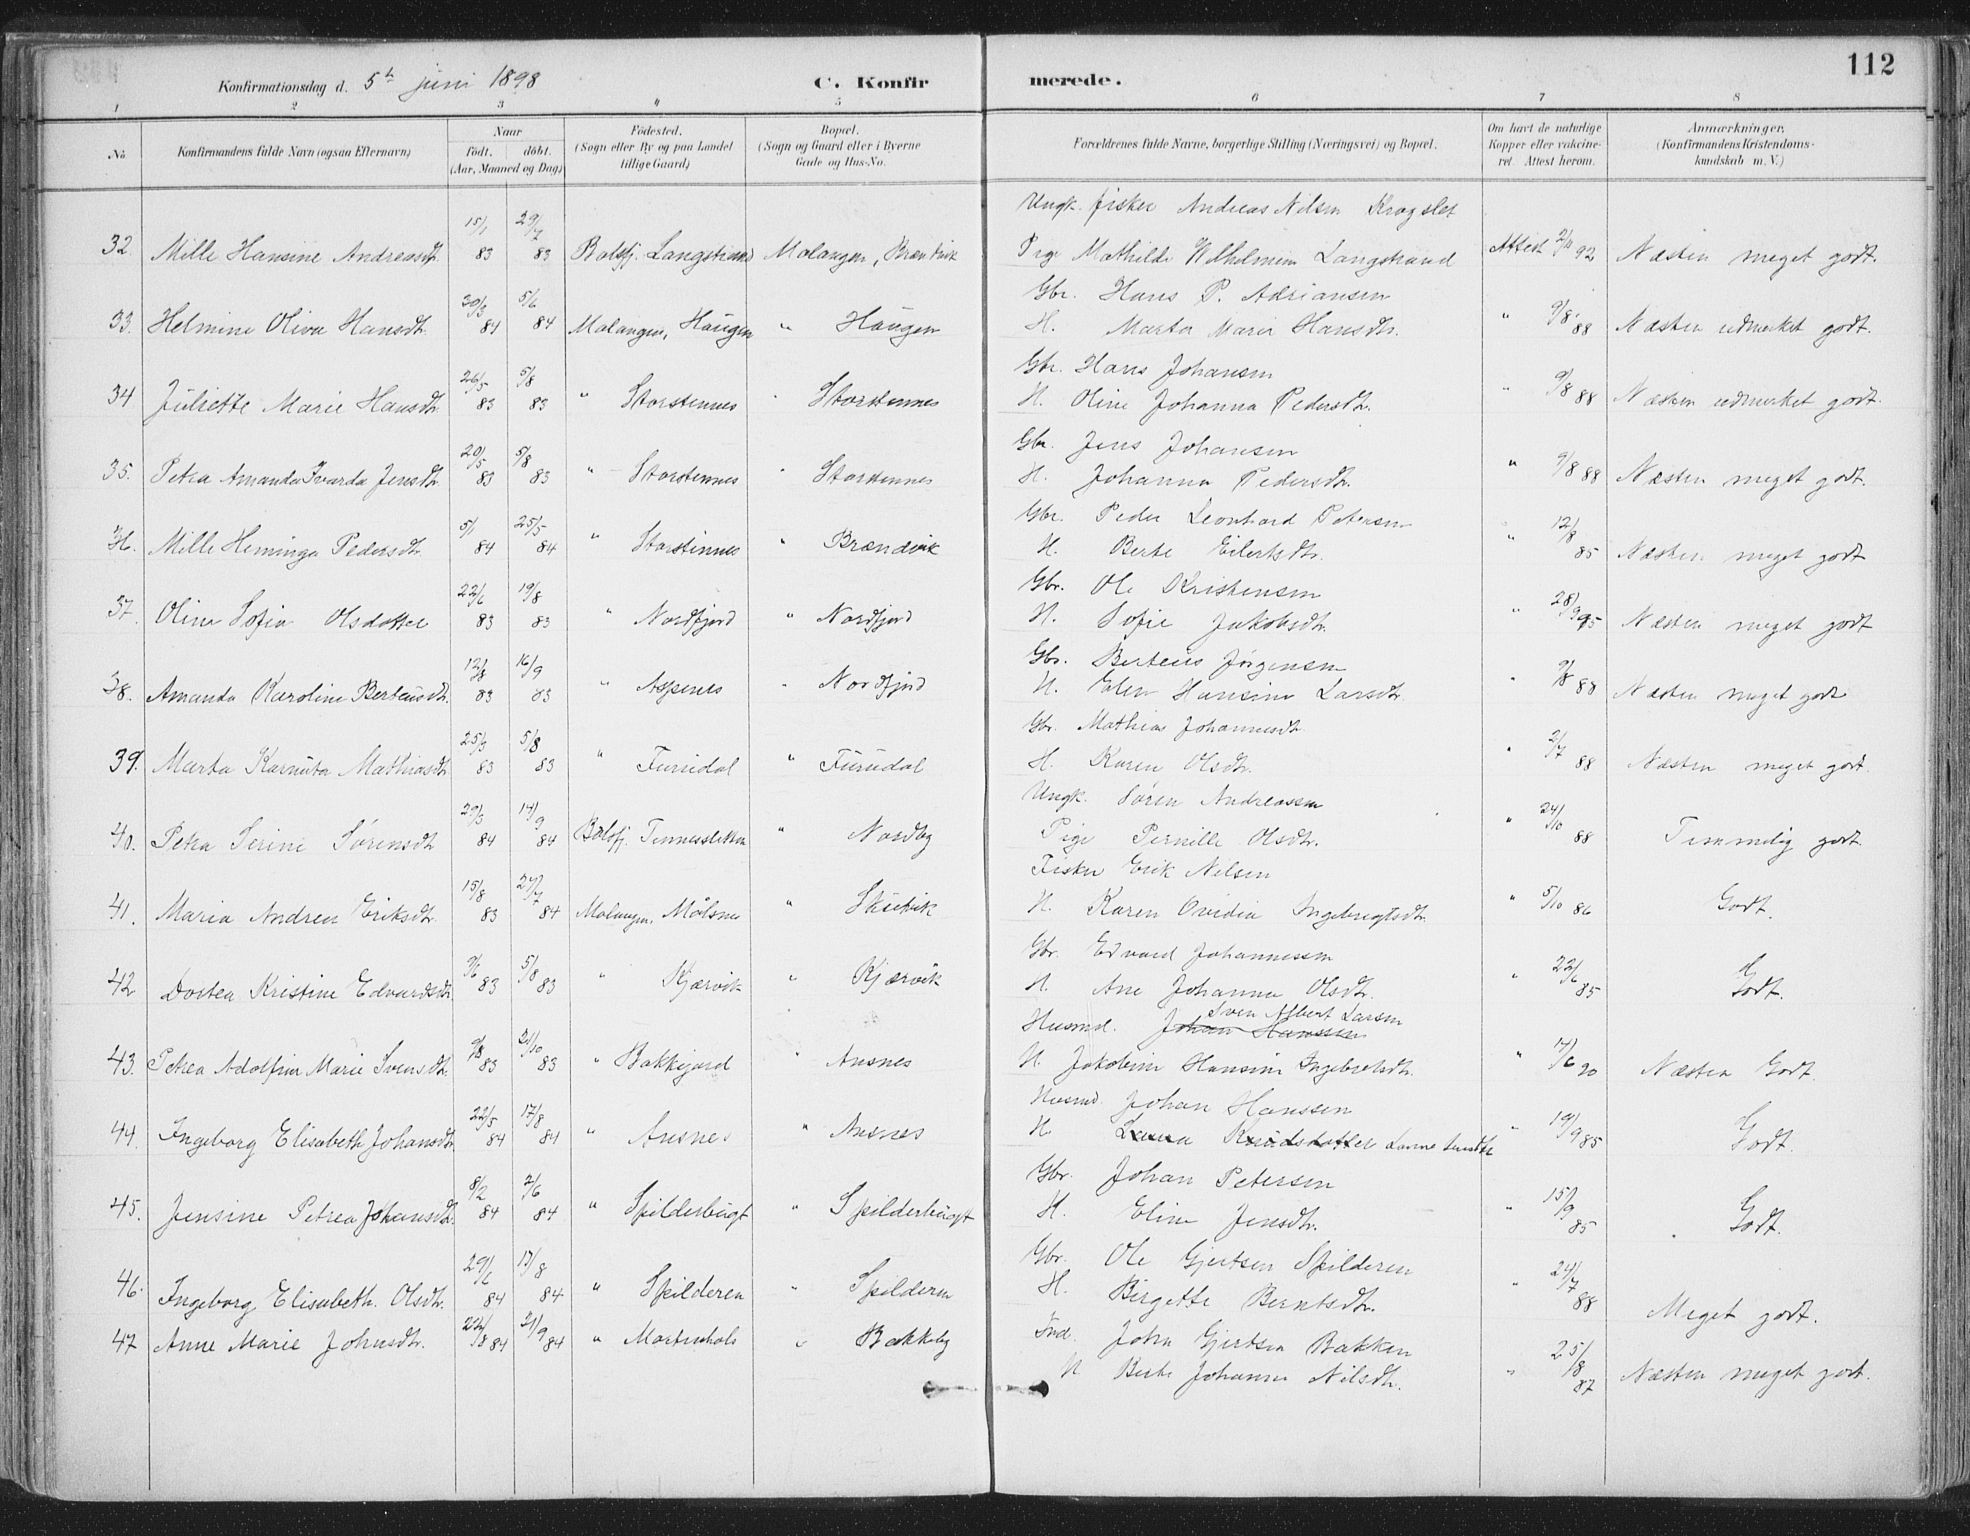 112
Konfirmationsdag d. 5te juni 1898 C. Konfirmerede.
1 2 3 4 5 6 7 8
No Konfirmandens fulde Navn (ogsaa Efternavn) Naar født. døbt. (Aar, Maaned og Dag) Fødested. (Sogn eller By og paa Landet tillige Gaard) Bopæl. (Sogn og Gaard eller i Byerne Gade og Hus-No. Forældrenes fulde Navne, borgerlige Stilling (Næringsvei) og Bopæl. Om havt de naturlige Kopper eller vakcineret. Attest herom. Anmærkninger. (Konfirmandens Kristendomskundskab m. V.)
Ungk. fisker Andreas Nilsen Krogslet
32. Mille Hansine Andreasdt. 15/1 83 29/7 83 Balsfj. Langstrand Malangen, Brændvik Pige Mathilde Wilhelmine Langstrand Attest 2/11 92 Næsten meget godt.
Gbr. Hans P. Adriansen
33. Helmine Oliva Hansdt. 30/3 84 5/6 84 Malangen, Haugen " Haugen H. Marta Marie Hansdtr. " 9/8 88 Næsten udmerket godt.
Gbr. Hans Johansen
34 Juliette Marie Hansdtr. 26/5 83 5/8 83 " Storstennes " Storstennes H. Oline Johanna Pedersdtr. " 9/8 88 Næsten udmerket godt.
Gbr. Jens Johansen
35. Petra Amanda Ivarda Jensdtr 20/5 83 5/8 83 " Storstennes " Storstennes H. Johanna Pedersdtr. " 9/8 88 Næsten meget godt.
Gbr. Peder Leonhard Petersen
36. Mille Heminga Pedersdtr. 5/1 84 25/5 84 " Storstennes " Brændvik H. Berte Eilertsdtr. " 12/8 85 Næsten meget godt
Gbr. Ole Kristensen
37. Oline Sofie Olsdatter 22/6 83 19/8 83 " Nordfjord " Nordfjord H. Sofie Jakobsdtr. " 28/9 95 Næsten meget godt
Gbr. Berteus Jørgensen
38. Amanda Karoline Berteusdtr. 12/8 83 16/9 83 " Aspenes " Nordfjord H. Elen Hansine Larsdtr. " 9/8 88 Næsten meget godt
Gbr. Mathias Johannesdt.
39. Marta Karnuta Mathiasdtr. 25/3 83 5/8 83 " Furudal " Furudal H. Karen Olsdtr. " 2/7 88 Næsten meget godt.
Ungk. Søren Andreassen
40. Petra Serine Sørensdtr 29/3 84 14/9 84 Balsfj. Tennessletten " Nordby Pige Pernille Olsdtr. " 24/10 88 Temmelig godt.
Fisker Erik Nilsen
41. Maria Andrea Eriksdtr. 15/8 83 27/7 84 Malangen, Målsnes " Skutvik H. Karen Ovidia Ingebrigtsdtr. " 5/10 86 Godt.
Gbr. Edvard Johannessen
42 Dortea Kristine Edvardsdtr 9/6 83 5/8 83 " Kjærvik " Kjærvik H. Ane Johanna Olsdtr. " 22/6 85 Godt.
Sven Albert Larsen
Husmd. Johan Hanssen
43. Petrea Adolfine Marie Svensdtr. 9/8 83 21/10 83 " Bakkejord " Ansnes H. Jakobine Hansine Ingebretsdtr. " 17/6 90 Næsten Godt.
Husmd. Johan Hanssen
44. Ingeborg Elisabeth Johansdtr. 22/5 84 17/8 84 " Ansnes " Ansnes H. Laura Knudsdatter " 19/9 85 Godt.
Gbr. Johan Petersen
45. Jensine Petrea Johansdtr. 8/2 84 2/6 84 " Spilderbugt " Spilderbugt H. Eline Jensdtr. " 15/9 85 Godt.
Gbr. Ole Gjertsen Spilderen
46. Ingeborg Elisabeth. Olsdtr. 29/6 84 17/8 84 " Spilderen " Spilderen H. Birgette Berntsdtr. " 24/7 88 Meget godt.
Ind. John Gjertsen Bakken
47 Anne Marie Johnsdtr. 22/8 84 21/9 84 " Mortenhals " Bakkeby H Berte Johanna Nilsdtr. " 25/8 87 Næsten meget godt.